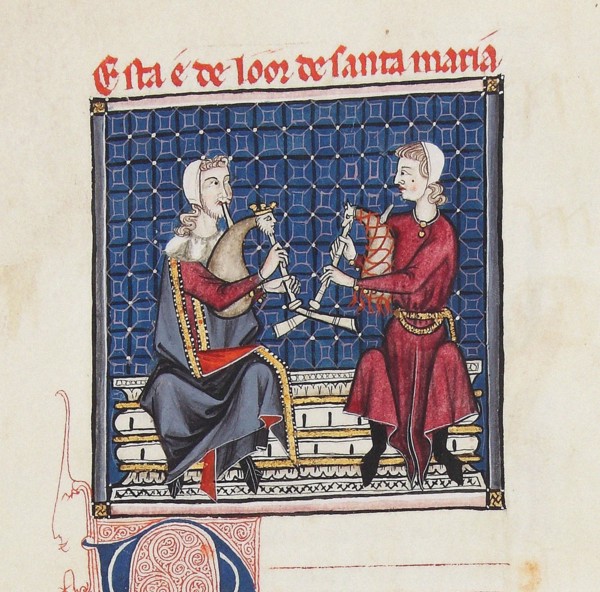 Esta é de lóór de santa maria